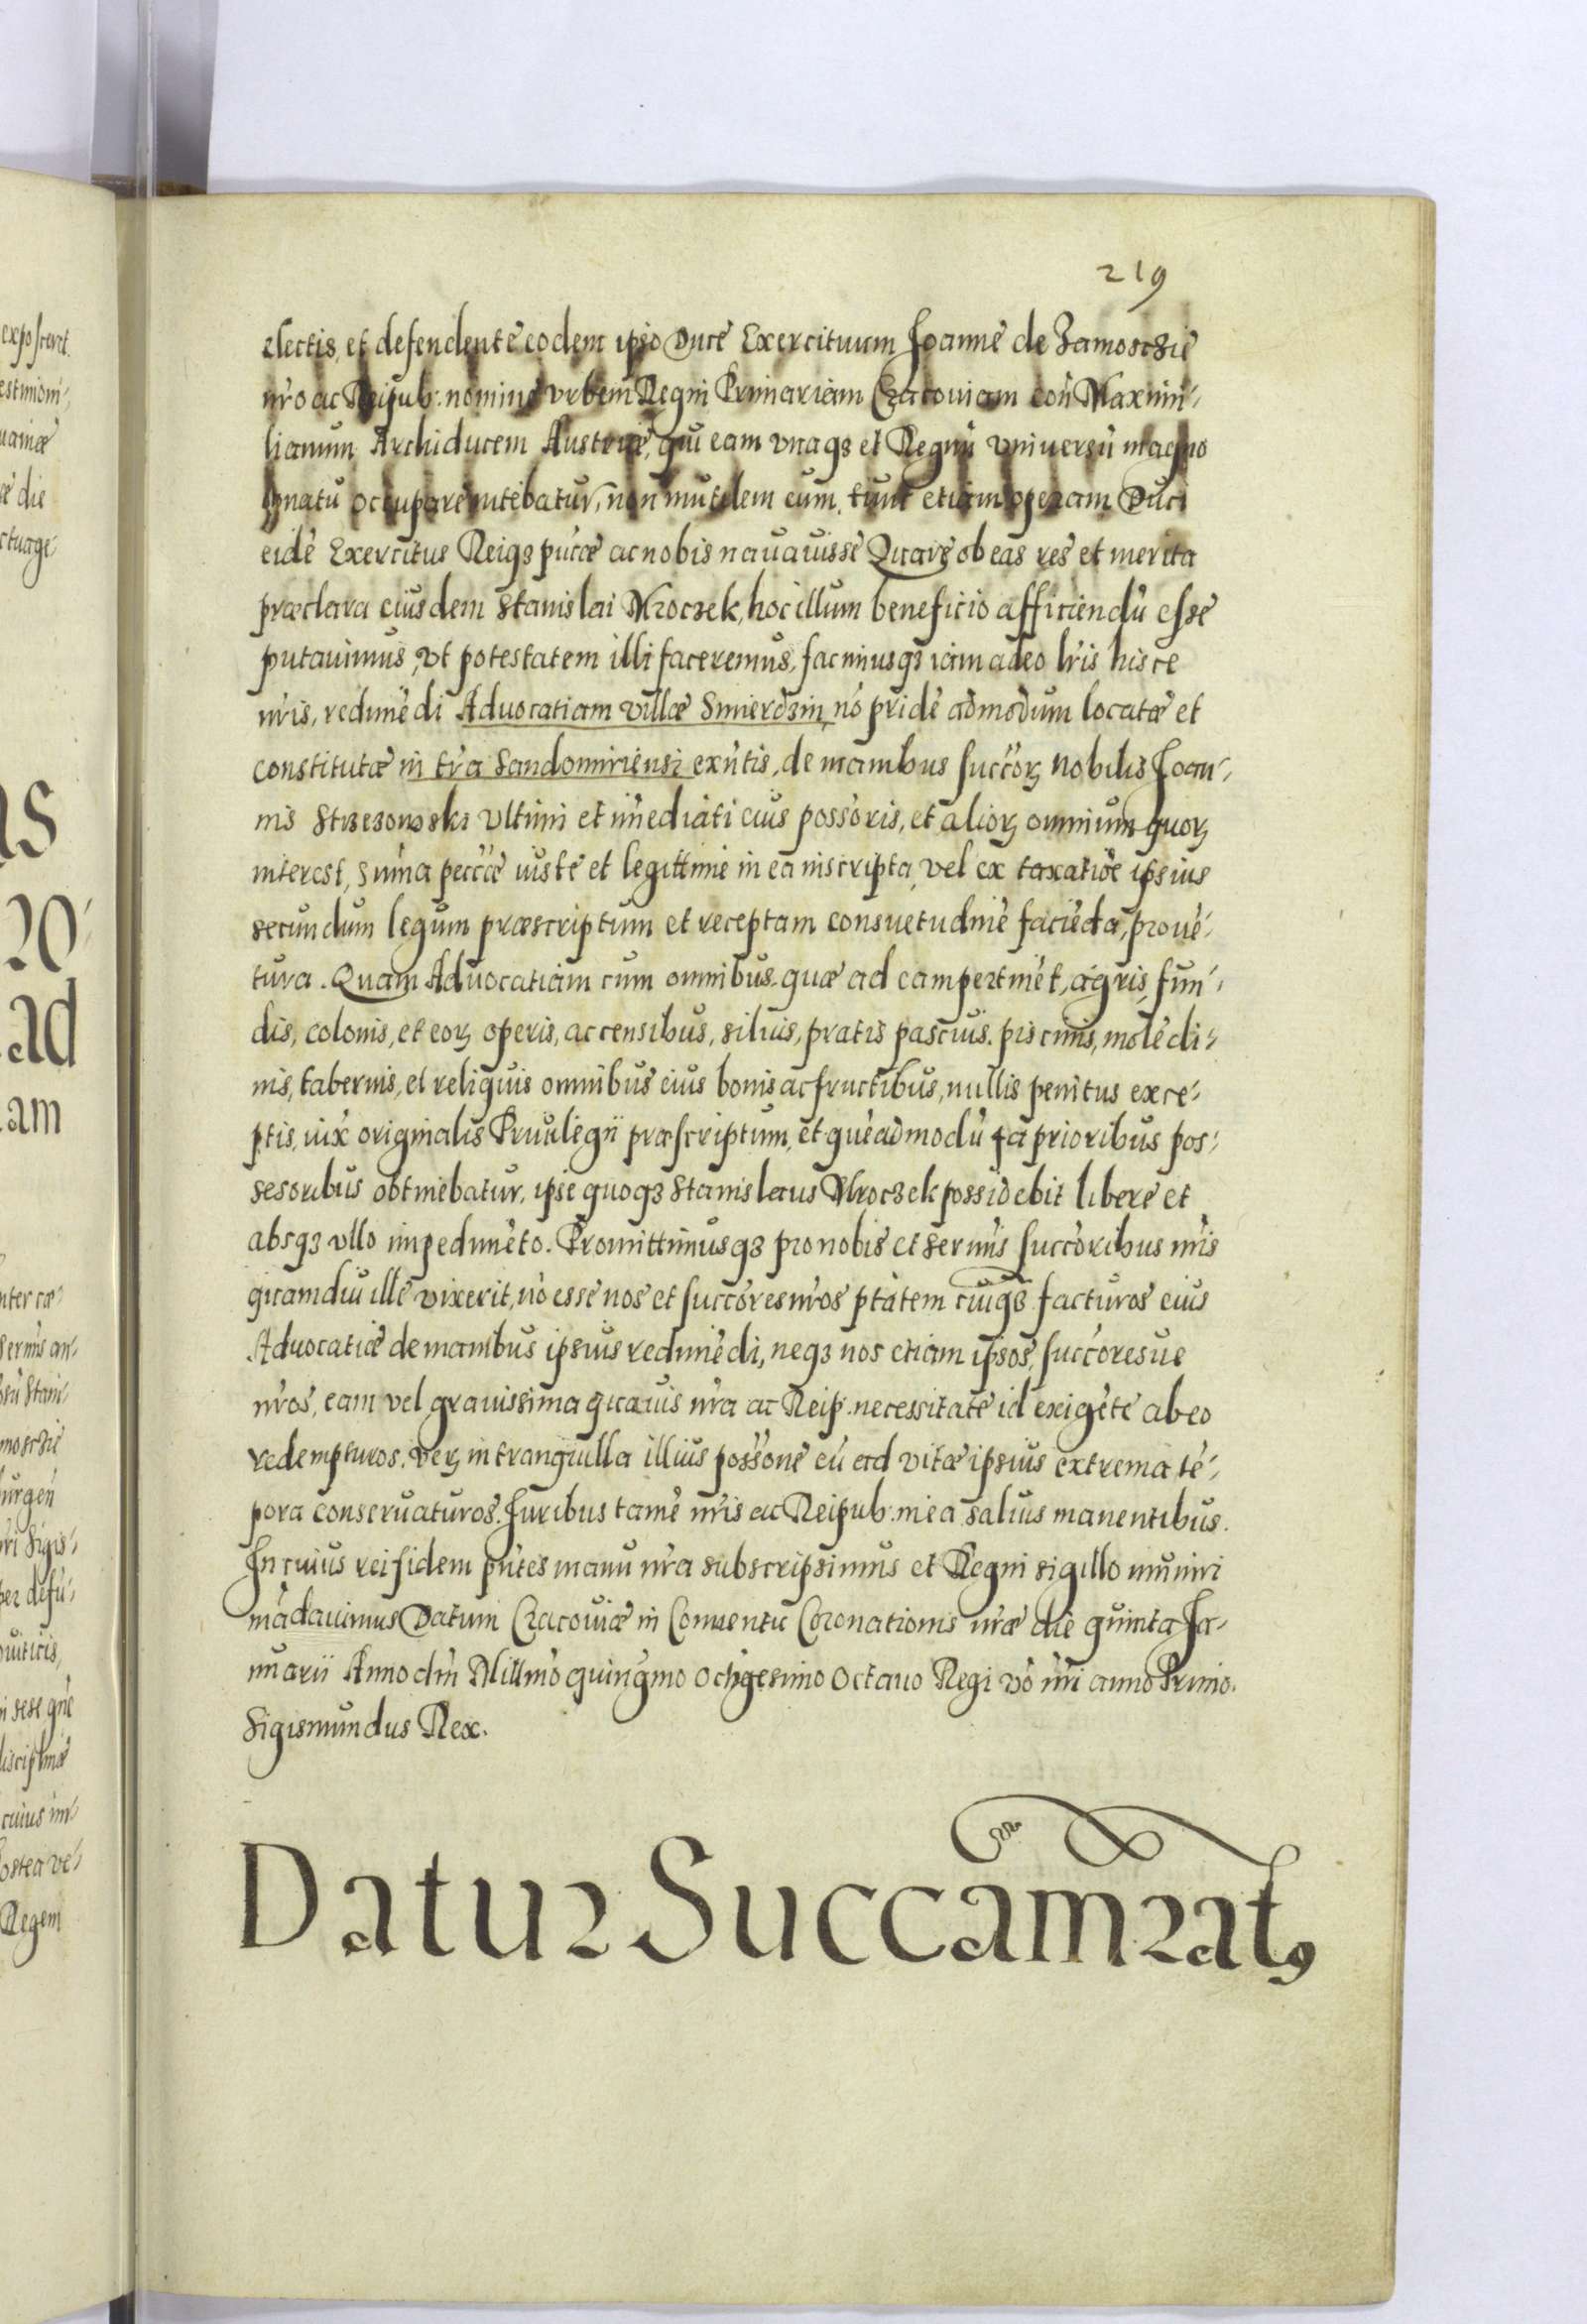 219
electis, et defendente eodem ipso Duce Exercituum Joanne de Zamosczie
nro ac Reipub: nomine vrbem Regni Primariam Cracouiam con Maximi-
lianum Archiducem Austriæ, qui eam vnaqз et Regnũ vniuersũ magno
conatu occupare nitebatur, non inutilem eum, tunc etiam operam Duci
eidẽ Exercitus Reiqз pucæ ac nobis nauauisse Quare ob eas res et merita
præclara eiusdem Stanislai Mroczek, hoc illum beneficio afficiendũ esse
putauimus, vt potestatem illi faceremus, facimusqз iam adeo lris hisce
nris, redimẽdi Aduocatiam villæ Smierdzin, nõ pridẽ admodum locatæ et
constitutæ in tra Sandomiriensi exñtis, de manibus succorꝝ nobilis Joan-
nis Strzezowski vltimi et imediati eius possoris, et aliorꝝ omnium quorꝝ
interest, suma pecciæ iuste et legittime in ea inscripta, vel ex taxatiõe ipsius
secundum legum præscriptum et receptam consuetudinẽ faciẽda, prouẽ-
tura. Quam Aduocatiam cum omnibus quæ ad eam pertinẽt, agris, fun-
dis, colonis, et eorꝝ operis, ac censibus, siluis, pratis pascuis, piscinis, molẽdi-
nis, tabernis, et reliquis omnibus eius bonis ac fructibus, nullis penitus exce-
ptis, iux originalis Priuilegii præscriptum, et quẽadmodũ a prioribus pos-
sesoribus obtinebatur, ipse quoqз Stanislaus Mroczek possidebit libere et
absqз vllo impedimẽto. Promittimusqз pro nobis et sermis succoribus nris
qicamdiu ille vixerit, nõ esse nos et succores nros ptatem cuiqз facturos eius
Aduocatiæ de manibus ipsius redimẽdi, neqз nos etiam ipsos, succoresue
nros, eam vel grauissima qicauis nra ac Reip. necessitate id exigẽte ab eo
redempturos, verꝝ in tranquilla illius possone eũ ad vitæ ipsius extrema tẽ-
pora conseruaturos. Juribus tamẽ nris ac Reipub: in ea saluis manentibus.
In cuius rei fidem pñtes manu nra subscripsimus et Regni sigillo muniri
mãdauimus Datum Cracouiæ in Conuentu Coronationis nræ die quinta Ja-
nuarii Anno dni Millmo quingmo octigesimo Octauo Regi võ nri anno Primo.
Sigismundus Rex.
Datur Succamrat9